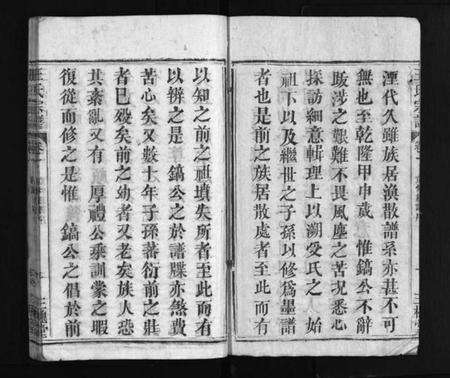 湮代久雖族居渙散譜系亦甚不可
無也至乾隆甲申歲 惟鎬公不辭
跋涉之艱難不畏風塵之苦況悉心
採訪細意輯理上以溯受氏之 始
祖下以及繼世之子孫以修爲墨譜
者也是故前之族居散處者至此而有
以知之前之祖墳失所者至此而有
以辨之是 鎬公之於譜牒亦煞費
苦心矣又數十年子孫蕃衍前之壯
者已殁矣前之幼者又老矣族人恐
其紊亂又有 厚禮公乘訓蒙之暇
復從而修之是惟 鎬公之倡於前